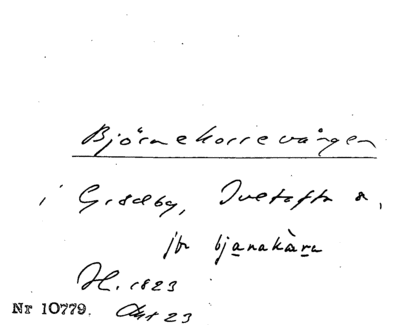 Björnekorrevången
i Grödby, Tvetofta s,
jfr bjanakàra
H. 1823
Nr 10779. Akt 23